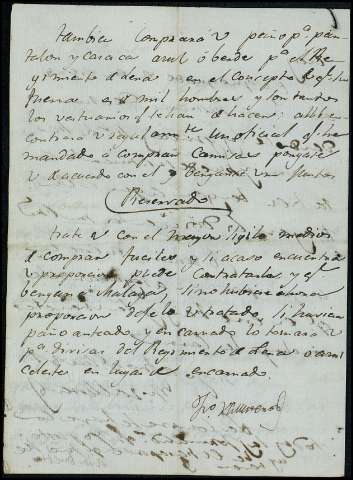 tambien comprara V paño pª pan
talon y casaca azul ó berde pª el Re
gimiento de en el Concepto de qe
fueran mil hombres y son tantos
los vestuarios qe se han de hacer: alli en
contrara V regularmte un oficial qe he
mandado á comprar Camisas pongase
V de acuerdo con el y bengan juntos
Reservado
trate V con el mayor sigilo medios
de comprar fuciles y si acaso encuentra
V proporcion puede Contratarla y qe
bengan á Malaga, si no hubiese
proporcion dejelo V tratado, si huviera
paño anteado y encarnado lo tomara V
pª divisas del Regimiento de ó azul
celeste en lugar de encarnado.